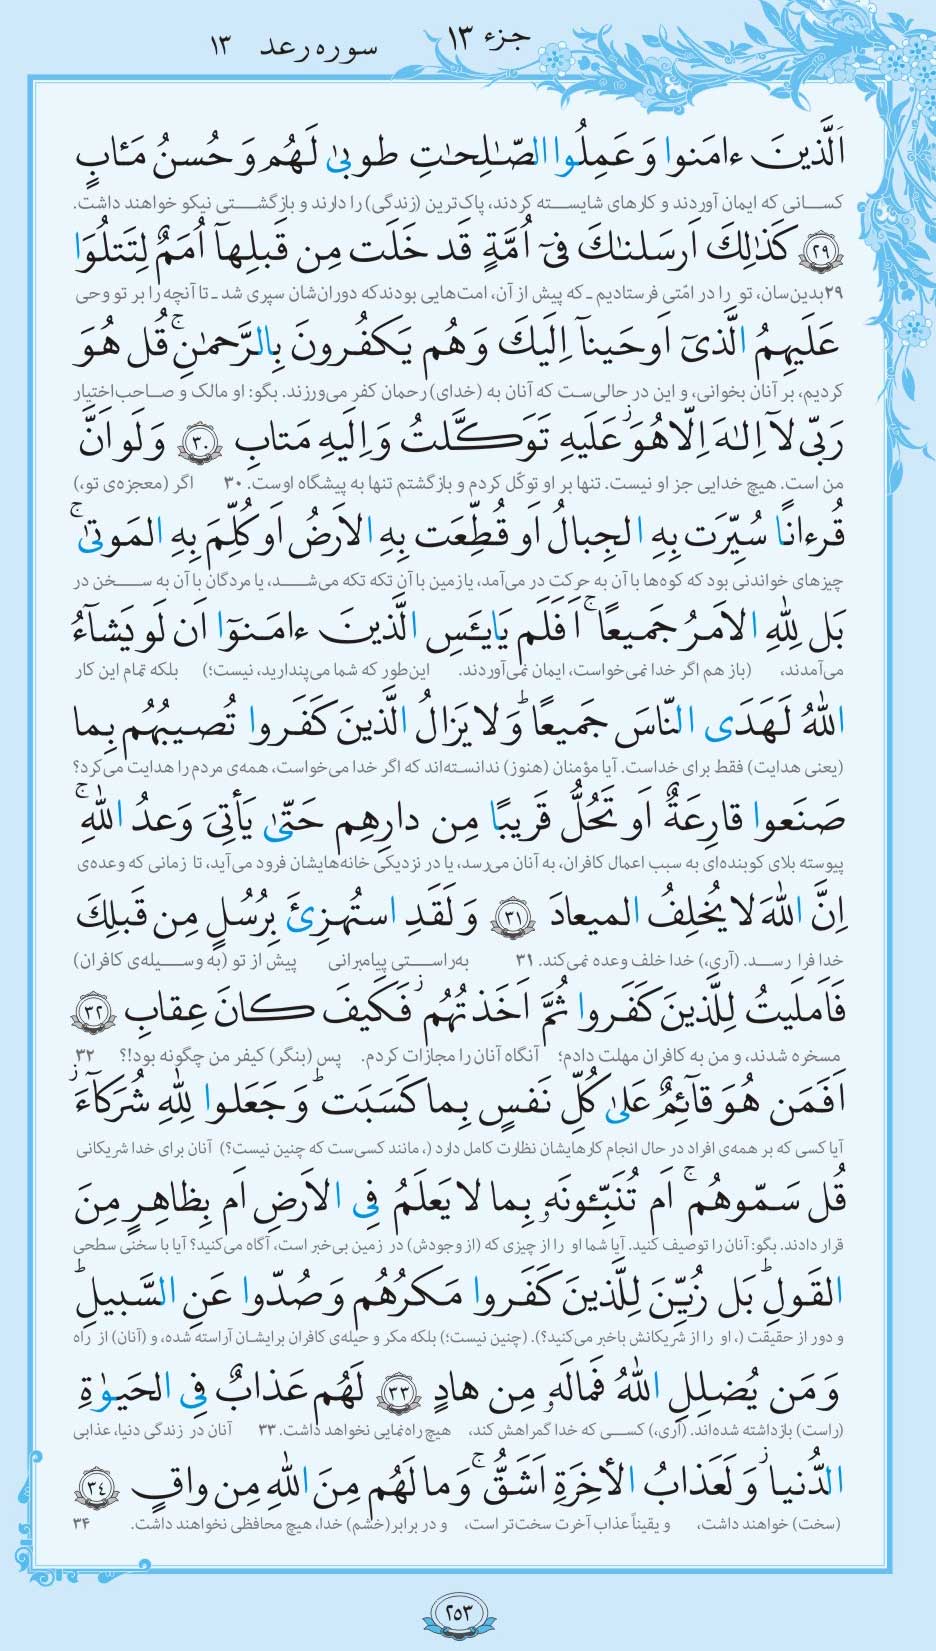 جزء ۱۳
سوره رعد ۱۳
اَلَّذینَ ءامَنوا وَ عَمِلُوا الصّٰلِحٰتِ طوبىٰ لَهُم وَ حُسنُ مَـٔابٍ
کسانی که ایمان آوردند و کارهای شایسته کردند، پاک‌ترین (زندگی) را دارند و بازگشتی نیکو خواهند داشت.
﴿۲۹﴾ کَذٰلِكَ اَرسَلناكَ فىٓ اُمَّةٍ قَد خَلَت مِن قَبلِهآ اُمَمٌ لِتَتلُوَا
۲۹ بدین‌سان، تو را در امّتی فرستادیم ـ که پیش از آن، امت‌هایی بودند که دوران‌شان سپری شد ـ تا آنچه را بر تو وحی
عَلَیهِمُ الَّذىٓ اَوحَینآ اِلَیكَ وَ هُم یَکفُرونَ بِالرَّحمٰنِ ۚ قُل هُوَ
کردیم، بر آنان بخوانی، و این در حالی‌ست که آنان به (خدای) رحمان کفر می‌ورزند. بگو: او مالک و صاحب‌اختیار
رَبّى لآ اِلـٰهَ اِلّا هُوَ ز عَلَیهِ تَوَکَّلتُ وَ اِلَیهِ مَتابِ ﴿۳۰﴾ وَ لَو اَنَّ
من است. هیچ خدایی جز او نیست. تنها بر او توکّل کردم و بازگشتم تنها به پیشگاه اوست. ۳۰ اگر (معجزه‌ی تو،)
قُرءانًا سُیِّرَت بِهِ الجِبالُ اَو قُطِّعَت بِهِ الاَرضُ اَو کُلِّمَ بِهِ المَوتىٰ ۚ
چیزهای خواندنی بود که کوه‌ها با آن به حرکت در می‌آمد، یا زمین با آن تکه تکه می‌شد، یا مردگان با آن به سخن در
بَل لِلّٰهِ الاَمرُ جَمیعًا ۚ اَفَلَم یَایـَٔسِ الَّذینَ ءامَنوٓا اَن لَو یَشآءُ
می‌آمدند، (باز هم اگر خدا نمی‌خواست، ایمان نمی‌آوردند. این‌طور که شما می‌پندارید، نیست؛) بلکه تمام این کار
اللّٰهُ لَهَدَى النّاسَ جَمیعًا ۗ وَ لا یَزالُ الَّذینَ کَفَروا تُصیبُهُم بِما
(یعنی هدایت) فقط برای خداست. آیا مؤمنان (هنوز) ندانسته‌اند که اگر خدا می‌خواست، همه‌ی مردم را هدایت می‌کرد؟
صَنَعوا قارِعَةٌ اَو تَحُلُّ قَریبًا مِن دارِهِم حَتّىٰ یَأتِىَ وَعدُ اللّٰهِ ۚ
پیوسته بلای کوبنده‌ای به سبب اعمال کافران، به آنان می‌رسد، یا در نزدیکی خانه‌هایشان فرود می‌آید، تا زمانی که وعده‌ی
اِنَّ اللّٰهَ لا یُخلِفُ المیعادَ ﴿۳۱﴾ وَ لَقَدِ استُهزِئَ بِرُسُلٍ مِن قَبلِكَ
خدا فرا رسد. (آری،) خدا خلف وعده نمی‌کند. ۳۱ به‌راستی پیامبرانی پیش از تو (به وسیله‌ی کافران)
فَاَملَیتُ لِلَّذینَ کَفَروا ثُمَّ اَخَذتُهُم ز فَکَیفَ کانَ عِقابِ ﴿۳۲﴾
مسخره شدند، و من به کافران مهلت دادم؛ آنگاه آنان را مجازات کردم. پس (بنگر) کیفر من چگونه بود!؟ ۳۲
اَفَمَن هُوَ قآئِمٌ عَلىٰ کُلِّ نَفسٍ بِما کَسَبَت ۗ وَ جَعَلوا لِلّٰهِ شُرَکآءَ ز
آیا کسی که بر همه‌ی افراد در حال انجام کارهایشان نظارت کامل دارد (، مانند کسی‌ست که چنین نیست؟) آنان برای خدا شریکانی
قُل سَمّوهُم ۚ اَم تُنَبِّـٔونَهۥ بِما لا یَعلَمُ فِى الاَرضِ اَم بِظاهِرٍ مِنَ
قرار دادند. بگو: آنان را توصیف کنید. آیا شما او را از چیزی که (از وجودش) در زمین بی‌خبر است، آگاه می‌کنید؟ آیا با سخنی سطحی
القَولِ ۗ بَل زُیِّنَ لِلَّذینَ کَفَروا مَکرُهُم وَ صُدّوا عَنِ السَّبیلِ ۗ
و دور از حقیقت (، او را از شریکانش باخبر می‌کنید؟). (چنین نیست؛) بلکه مکر و حیله‌ی کافران برایشان آراسته شده، و (آنان) از راه
وَ مَن یُضلِلِ اللّٰهُ فَما لَهۥ مِن هادٍ ﴿۳۳﴾ لَهُم عَذابٌ فِى الحَیوٰةِ
(راست) بازداشته شده‌اند. (آری،) کسی که خدا گمراهش کند، هیچ راه‌نمایی نخواهد داشت. ۳۳ آنان در زندگی دنیا، عذابی
الدُّنیا ز وَ لَعَذابُ الأخِرَةِ اَشَقُّ ۚ وَ ما لَهُم مِنَ اللّٰهِ مِن واقٍ ﴿۳۴﴾
(سخت) خواهند داشت، و یقیناً عذاب آخرت سخت‌تر است، و در برابر (خشم) خدا، هیچ محافظی نخواهند داشت. ۳۴
۲۵۳